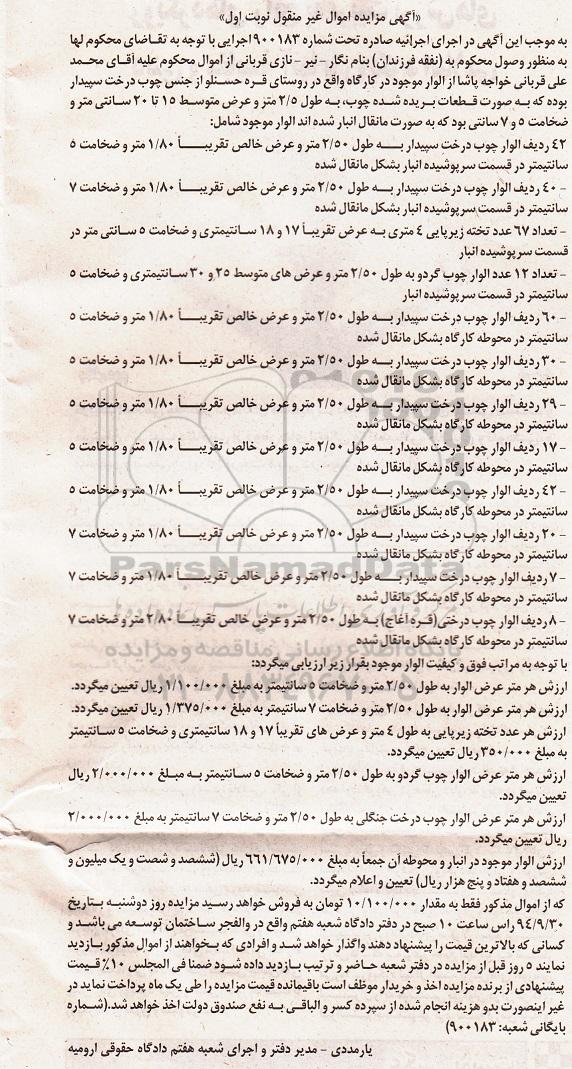 «آگهی مزایده اموال غیر منقول نوبت اول»
به موجب این آگهی در اجرای اجرائیه صادره تحت شماره ۹۰۰۱۸۳ اجرایی با توجه به تقاضای محکوم لها
به منظور وصول محکوم به (نفقه فرزندان) بنام نگار - نیر - نازی قربانی از اموال محکوم علیه آقای محمد
علی قربانی خواجه پاشا از الوار موجود در کارگاه واقع در روستای قره حسنلو از جنس چوب درخت سپیدار
بوده که به صورت قطعات بریده شده چوب، به طول ۲/۵ متر و عرض متوسط ۱۵ تا ۲۰ سانتی متر و
ضخامت ۵ و ۷ سانتی بود که به صورت مانقال انبار شده اند الوار موجود شامل:
۴۲ ردیف الوار چوب درخت سپیدار به طول ۲/۵۰ متر و عرض خالص تقریباً ۱/۸۰ متر و ضخامت ۵
سانتیمتر در قسمت سرپوشیده انبار بشکل مانقال شده
- ۴۰ ردیف الوار چوب درخت سپیدار به طول ۲/۵۰ متر و عرض خالص تقریباً ۱/۸۰ متر و ضخامت ۷
سانتیمتر در قسمت سرپوشیده انبار بشکل مانقال شده
- تعداد ۶۷ عدد تخته زیرپایی ۴ متری به عرض تقریباً ۱۷ و ۱۸ سانتیمتری و ضخامت ۵ سانتی متر در
قسمت سرپوشیده انبار
- تعداد ۱۲ عدد الوار چوب گردو به طول ۲/۵۰ متر و عرض های متوسط ۲۵ و ۳۰ سانتیمتری و ضخامت ۵
سانتیمتر در قسمت سرپوشیده انبار
- ۶۰ ردیف الوار چوب درخت سپیدار به طول ۲/۵۰ متر و عرض خالص تقریباً ۱/۸۰ متر و ضخامت ۵
سانتیمتر در محوطه کارگاه بشکل مانقال شده
- ۳۰ ردیف الوار چوب درخت سپیدار به طول ۲/۵۰ متر و عرض خالص تقریباً ۱/۸۰ متر و ضخامت ۵
سانتیمتر در محوطه کارگاه بشکل مانقال شده
- ۲۹ ردیف الوار چوب درخت سپیدار به طول ۲/۵۰ متر و عرض خالص تقریباً ۱/۸۰ متر و ضخامت ۵
سانتیمتر در محوطه کارگاه بشکل مانقال شده
- ۱۷ ردیف الوار چوب درخت سپیدار به طول ۲/۵۰ متر و عرض خالص تقریباً ۱/۸۰ متر و ضخامت ۵
سانتیمتر در محوطه کارگاه بشکل مانقال شده
- ۴۲ ردیف الوار چوب درخت سپیدار به طول ۲/۵۰ متر و عرض خالص تقریباً ۱/۸۰ متر و ضخامت ۵
سانتیمتر در محوطه کارگاه بشکل مانقال شده
- ۲۰ ردیف الوار چوب درخت سپیدار به طول ۲/۵۰ متر و عرض خالص تقریباً ۱/۸۰ متر و ضخامت ۷
سانتیمتر در محوطه کارگاه بشکل مانقال شده
- ۷ ردیف الوار چوب درخت سپیدار به طول ۲/۵۰ متر و عرض خالص تقریباً ۱/۸۰ متر و ضخامت ۷
سانتیمتر در محوطه کارگاه بشکل مانقال شده
- ۸ ردیف الوار چوب درختی (قره اغاج) به طول ۲/۵۰ متر و عرض خالص تقریباً ۲/۸۰ متر و ضخامت ۷
سانتیمتر در محوطه کارگاه بشکل مانقال شده
با توجه به مراتب فوق و کیفیت الوار موجود بقرار زیر ارزیابی میگردد:
ارزش هر متر عرض الوار به طول ۲/۵۰ متر و ضخامت ۵ سانتیمتر به مبلغ ۱/۱۰۰/۰۰۰ ریال تعیین میگردد.
ارزش هر متر عرض الوار به طول ۲/۵۰ متر و ضخامت ۷ سانتیمتر به مبلغ ۱/۳۷۵/۰۰۰ ریال تعیین میگردد.
ارزش هر عدد تخته زیرپایی به طول ۴ متر و عرض های تقریباً ۱۷ و ۱۸ سانتیمتری و ضخامت ۵ سانتیمتر
به مبلغ ۳۵۰/۰۰۰ ریال تعیین میگردد.
ارزش هر متر عرض الوار چوب گردو به طول ۲/۵۰ متر و ضخامت ۵ سانتیمتر به مبلغ ۲/۰۰۰/۰۰۰ ریال
تعیین میگردد.
ارزش هر متر عرض الوار چوب درخت جنگلی به طول ۲/۵۰ متر و ضخامت ۷ سانتیمتر به مبلغ ۲/۰۰۰/۰۰۰
ریال تعیین میگردد.
ارزش الوار موجود در انبار و محوطه آن جمعاً به مبلغ ۶۶۱/۶۷۵/۰۰۰ ریال (ششصد و شصت و یک میلیون و
ششصد و هفتاد و پنج هزار ریال) تعیین و اعلام میگردد.
که از اموال مذکور فقط به مقدار ۱۰/۱۰۰/۰۰۰ تومان به فروش خواهد رسید مزایده روز دوشنبه بتاریخ
۹۴/۹/۳۰ راس ساعت ۱۰ صبح در دفتر دادگاه شعبه هفتم واقع در والفجر ساختمان توسعه می باشد و
کسانی که بالاترین قیمت را پیشنهاد دهند واگذار خواهد شد و افرادی که بخواهند از اموال مذکور بازدید
نمایند ۵ روز قبل از مزایده در دفتر شعبه حاضر و ترتیب بازدید داده شود ضمنا فی المجلس ۱۰٪ قیمت
پیشنهادی از برنده مزایده اخذ و خریدار موظف است باقیمانده قیمت مزایده را طی یک ماه پرداخت نماید در
غیر اینصورت بدو هزینه انجام شده از سپرده کسر و الباقی به نفع صندوق دولت اخذ خواهد شد.(شماره
بایگانی شعبه: ۹۰۰۱۸۳)
یارمددی - مدیر دفتر و اجرای شعبه هفتم دادگاه حقوقی ارومیه
ParsNamadData
پایگاه اطلاع رسانی مناقصه و مزایده